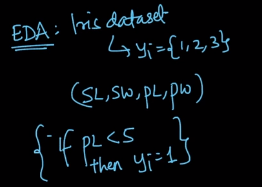 EDA: Iris dataset
↳ yi = {1,2,3}
(SL, SW, PL, PW)
{ If PL<5
then yi=1 }